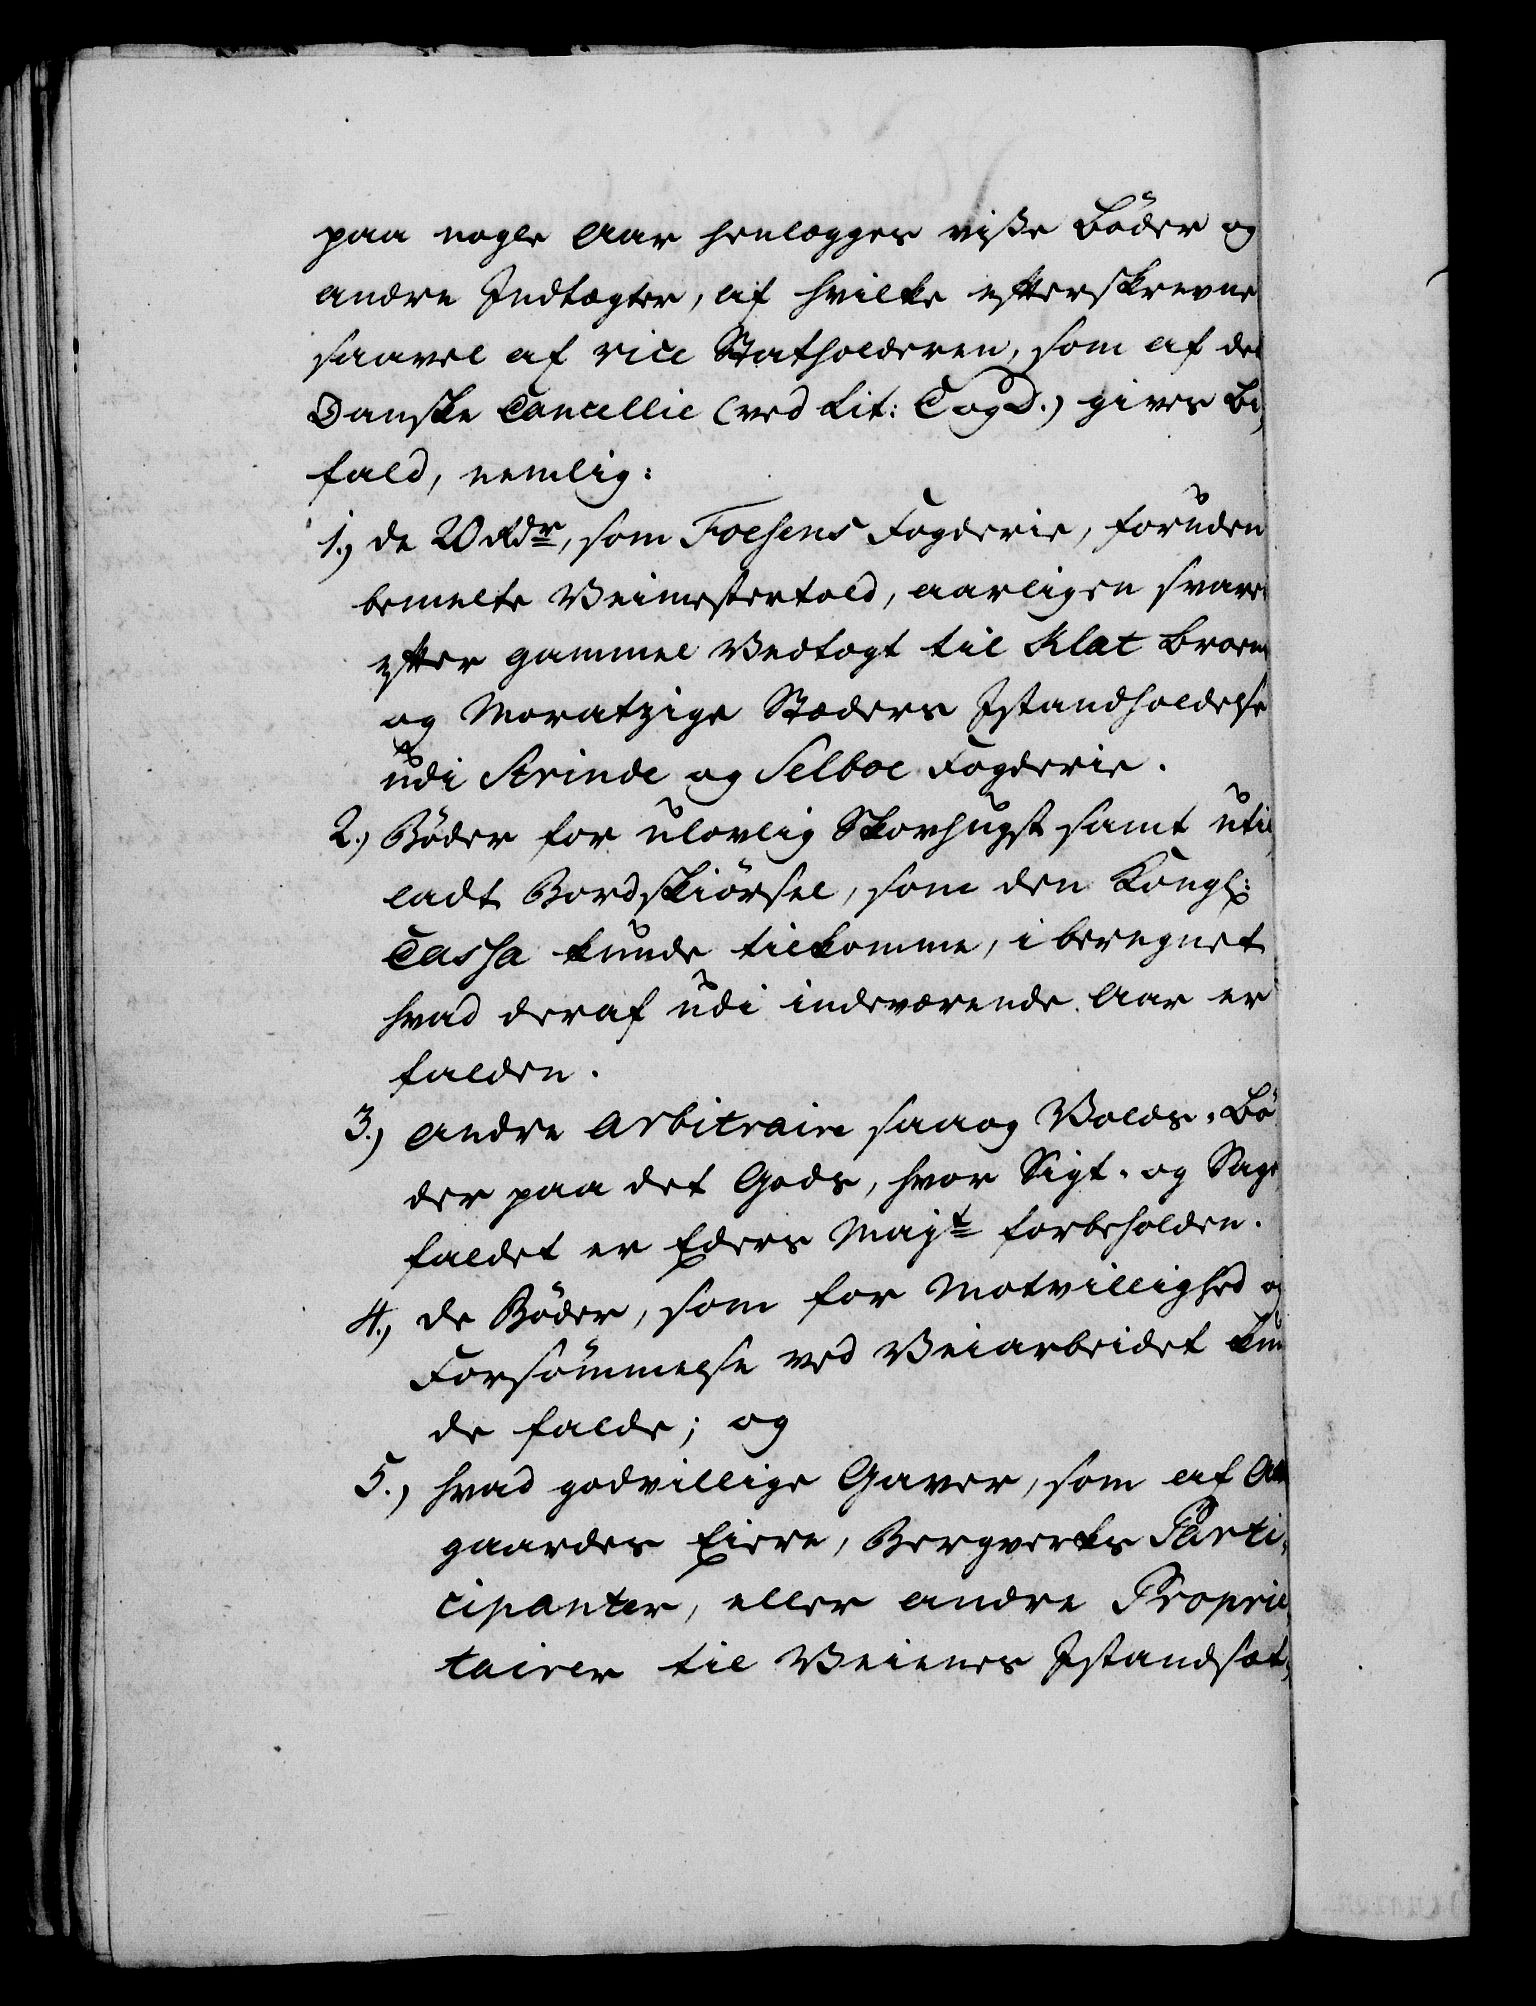 paa nogle Aar henlægges visse Bøder og
andre Indtægter, af hvilke efterskrevne
saavel af vice Statholderen, som af det
Danske Cancellie (ved Lit: C og D.) gives Bi,
fald, nemlig:
1., de 20 Rdr, som Foesens Fogderie, foruden
bemelte Veimestertold, aarligen svare
efter gammel Vedtægt til Klat Broers
og Moratzige Stæders Istandholdelse
udi Strinde og Selboe Fogderie.
2.) Bøder for ulovlig Skovhugst samt util,
ladt Bordskiørsel, som den Kongl:
Cassa kunde tilkomme, iberegnet
hvad deraf udi indeværende Aar er
falden.
3.) andre Arbitraire saaog Volds-Bø
der paa det Gods, hvor Sigt- og Sage
faldet er Eders Mayt forbeholden.
4., de Bøder, som for Motvillighed og
Forsømmelse ved Veiarbeidet kun
de falde; og
5., hvad godvillige Gaver, som af
gaardes Eiere, Bergverks Parti,
cipanter, eller andre Proprie,
tairer til Veienes Istandsæt,